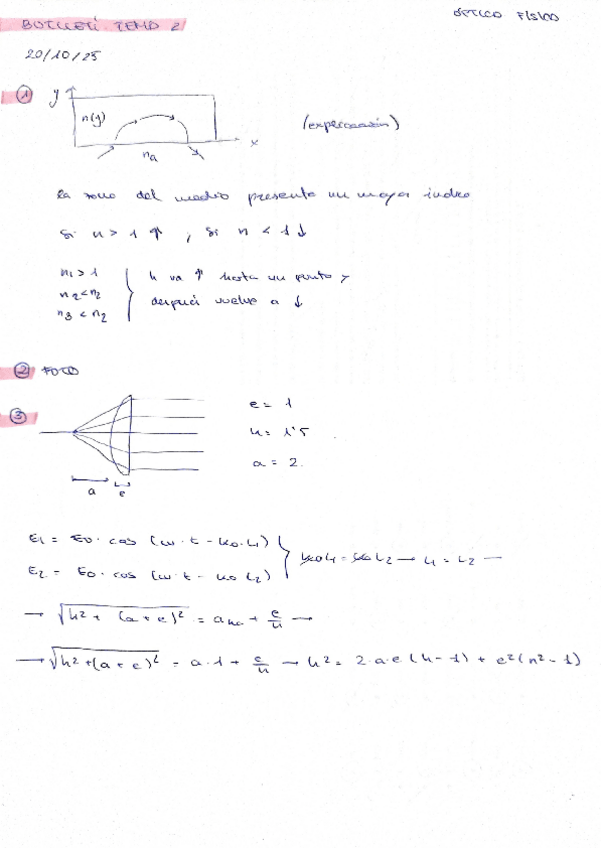 BUTLLETÍ TEMA 2
ÓPTICA FÍSICA
20/10/25
① y
n(y)
x
na
(explicación)
la zona del medio presenta un mayor índice
Si n > 1 ↑ , Si n < 1 ↓
n₁ > 1
n₂ < n₂
n₃ < n₂
n va ↑ hasta un punto y
después vuelve a ↓
② FOTO
③
a
e
e = 1
n = 1'5
a = 2.
E₁ = E₀ · cos (ω · t - k₀ · L₁)
E₂ = E₀ · cos (ω · t - k₀ L₂)
k₀L₁ = k₀L₂ → L₁ = L₂ —
→ √h² + (a + e)² = a na + e/n →
→ √h² + (a + e)² = a · 1 + e/n → h² = 2 · a · e (n - 1) + e² (n² - 1)